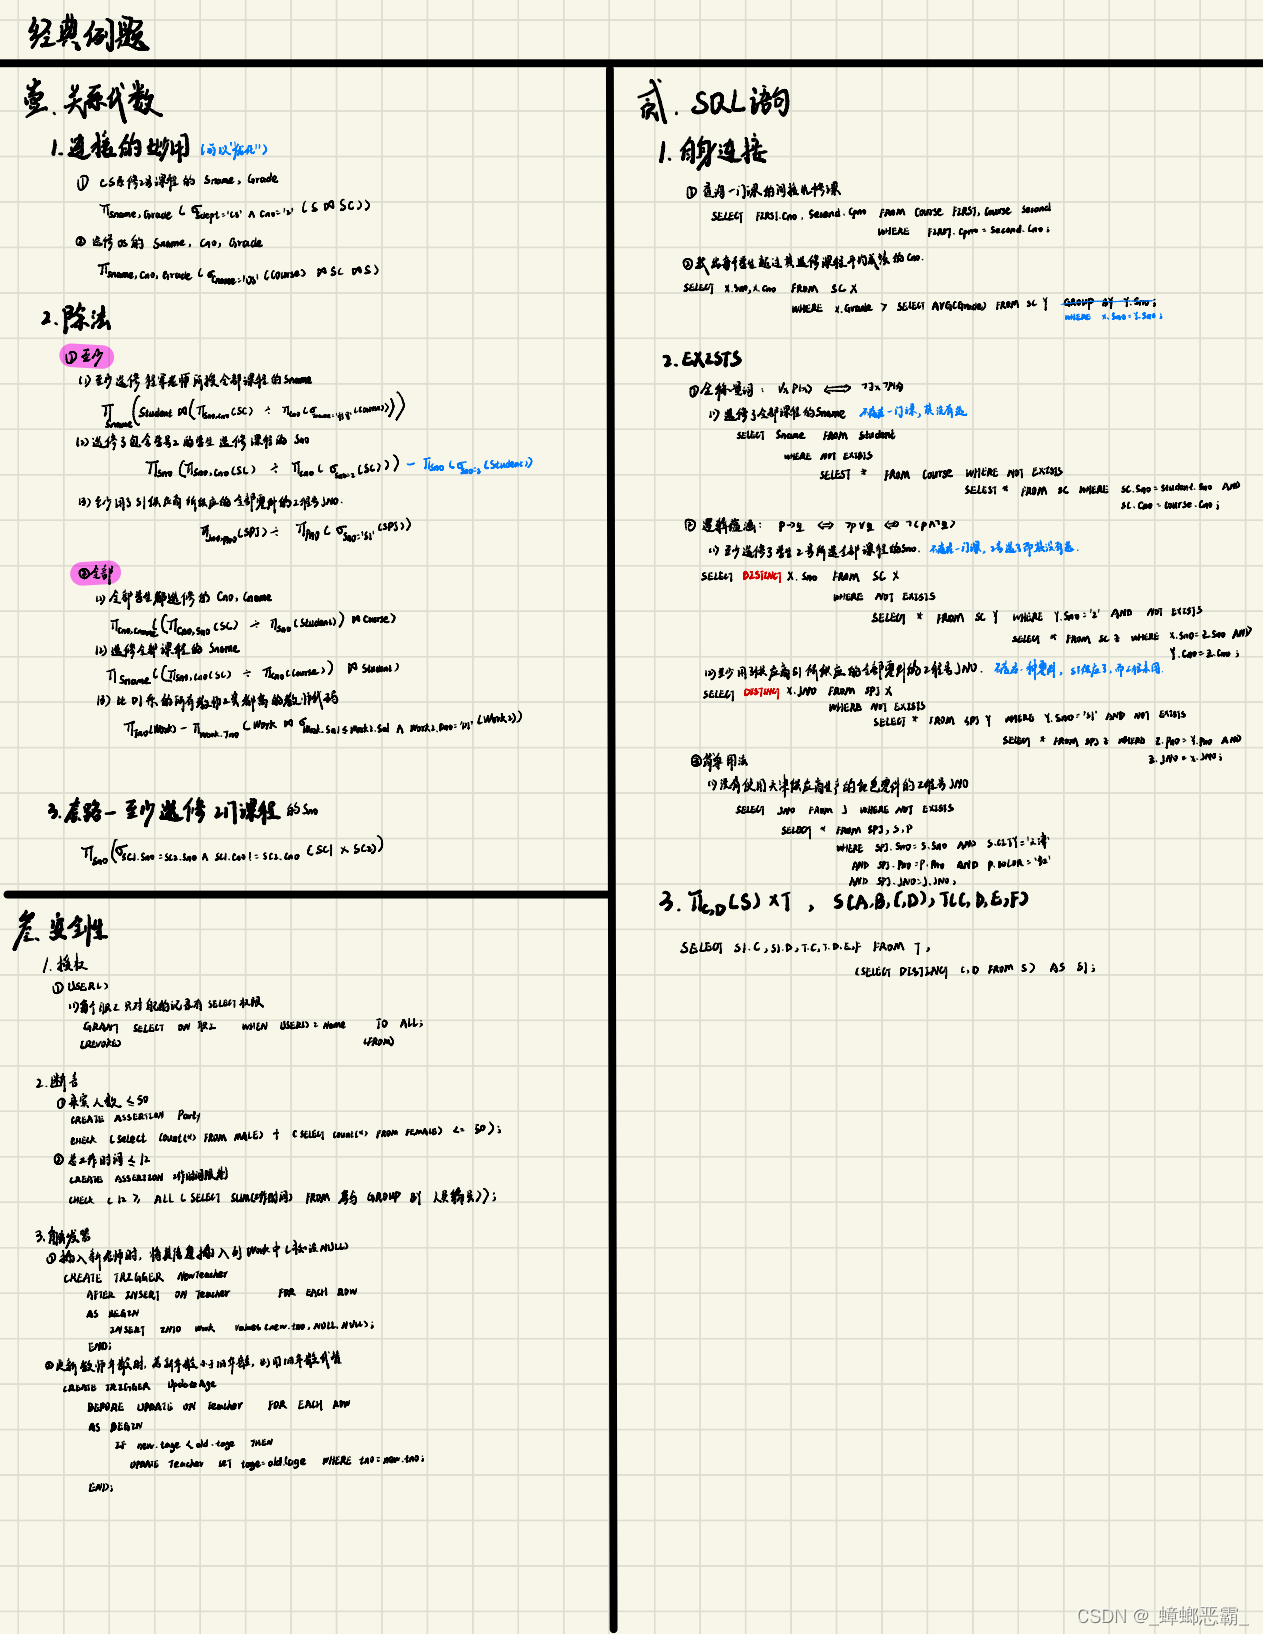 经典例题
壹. 关系代数
1. 连接的妙用 (可以"优化")
① CS系修2号课程的 Sname, Grade
π_{Sname, Grade} ( σ_{Sdept='CS' ∧ Cno='2'} (S ⋈ SC))
② 选修OS的 Sname, Cno, Grade
π_{Sname, Cno, Grade} ( σ_{Cname='OS'} (Course) ⋈ SC ⋈ S)
2. 除法
① 至少
(1) 至少选修 程军老师所授全部课程的 Sname
π_{Sname} (Student ⋈ (π_{Sno,Cno}(SC) ÷ π_{Cno}(σ (Course))))
(2) 选修了包含学号2的学生选修课程的 Sno
π_{Sno} (π_{Sno,Cno}(SC) ÷ π_{Cno}(σ_{Sno=2}(SC))) - π_{Sno}(σ_{Sno=2}(Student))
(3) 至少用了S1供应商所供应的全部零件的工程号JNO.
π_{Jno,Pno}(SPJ) ÷ π_{PNO}(σ_{Sno='S1'}(SPJ))
② 全部
(1) 全部学生都选修的 Cno, Cname
π_{Cno,Cname}((π_{Cno,Sno}(SC) ÷ π_{Sno}(Student)) ⋈ Course)
(2) 选修全部课程的 Sname
π_{Sname}((π_{Sno,Cno}(SC) ÷ π_{Cno}(Course)) ⋈ Student)
(3) 比D1系的所有教师工资都高的教师代码
π_{Tno}(Work) - π_{Work.Tno}(Work ⋈ σ_{Work.Sal ≤ Work2.Sal ∧ Work2.Dno='D1'}(Work2))
3. 套路一 至少选修2门课程的 Sno
π_{Sno}(σ_{SC1.Sno=SC2.Sno ∧ SC1.Cno!=SC2.Cno}(SC1 × SC2))
叁. 安全性
1. 授权
① USER()
(1) 每个职工只对自己的记录有SELECT权限
GRANT SELECT ON 职工 WHEN USER()=Name TO ALL;
(REVOKE) (FROM)
2. 断言
① 来宾人数 ≤50
CREATE ASSERTION Party
CHECK (Select Count(*) FROM MALE) + (SELECT Count(*) FROM FEMALE) <= 50);
② 总工作时间 ≤12
CREATE ASSERTION 工作时间限制
CHECK (12 >= ALL (SELECT SUM(工作时间) FROM 参与 GROUP BY 人员编号));
3. 触发器
① 插入新老师时, 将其信息插入到Work中 (未知设NULL)
CREATE TRIGGER NewTeacher
AFTER INSERT ON Teacher FOR EACH ROW
AS BEGIN
INSERT INTO Work Values(new.tno, NULL, NULL);
END;
② 更新教师年龄时, 若新年龄小于旧年龄, 则用旧年龄代替
CREATE TRIGGER UpdateAge
BEFORE UPDATE ON Teacher FOR EACH ROW
AS BEGIN
IF new.tage < old.tage THEN
UPDATE Teacher SET tage=old.tage WHERE tno=new.tno;
END;
贰. SQL语句
1. 自身连接
① 查每一门课的间接先修课
SELECT FIRST.Cno, Second.Cpno FROM Course FIRST, Course Second
WHERE FIRST.Cpno = Second.Cno;
② 找出每个学生超过其选修课程平均成绩的Cno.
SELECT X.Sno, X.Cno FROM SC X
WHERE X.Grade > SELECT AVG(Grade) FROM SC Y GROUP BY Y.Sno;
WHERE X.Sno=Y.Sno;
2. EXISTS
① 全称量词: ∀x P(x) ⟺ ¬∃x ¬P(x)
(1) 选修了全部课程的Sname 不存在一门课, 其没有选
SELECT Sname FROM Student
WHERE NOT EXISTS
SELECT * FROM Course WHERE NOT EXISTS
SELECT * FROM SC WHERE SC.Sno=Student.Sno AND
SC.Cno=Course.Cno;
② 逻辑蕴涵: p→q ⟺ ¬p∨q ⟺ ¬(p∧¬q)
(1) 至少选修了学生2号所选全部课程的Sno. 不存在一门课, 2号选了而其没有选.
SELECT DISTINCT X.Sno FROM SC X
WHERE NOT EXISTS
SELECT * FROM SC Y WHERE Y.Sno='2' AND NOT EXISTS
SELECT * FROM SC Z WHERE X.Sno=Z.Sno AND
Y.Cno=Z.Cno;
(2) 至少用了供应商S1所供应的全部零件的工程号JNO. 不存在一种零件, S1供应了, 而工程未用.
SELECT DISTINCT X.JNO FROM SPJ X
WHERE NOT EXISTS
SELECT * FROM SPJ Y WHERE Y.Sno='S1' AND NOT EXISTS
SELECT * FROM SPJ Z WHERE Z.Pno=Y.Pno AND
Z.JNO=X.JNO;
③ 简单用法
(1) 没有使用天津供应商生产的红色零件的工程号JNO
SELECT JNO FROM J WHERE NOT EXISTS
SELECT * FROM SPJ, S, P
WHERE SPJ.Sno=S.Sno AND S.CITY='天津'
AND SPJ.Pno=P.Pno AND P.COLOR='红'
AND SPJ.JNO=J.JNO;
3. π_{C,D}(S) × T , S(A,B,C,D), T(C,D,E,F)
SELECT S1.C, S1.D, T.C, T.D, E, F FROM T,
(SELECT DISTINCT C,D FROM S) AS S1;
CSDN @_蟑螂恶霸_